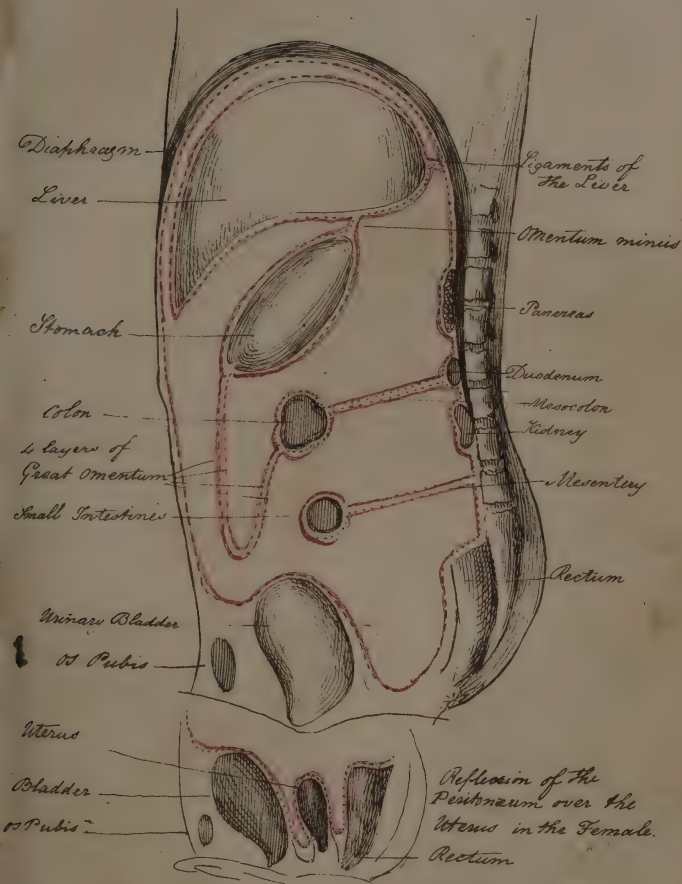 Diaphragm
Liver
Stomach
Colon
4 layers of
Great Omentum
Small Intestines
Urinary Bladder
Os Pubis
Ligaments of
the Liver
Omentum minus
Pancreas
Duodenum
Mesocolon
Kidney
Mesentery
Rectum
Uterus
Bladder
Os Pubis
Reflexion of the
Peritoneum over the
Uterus in the Female.
Rectum